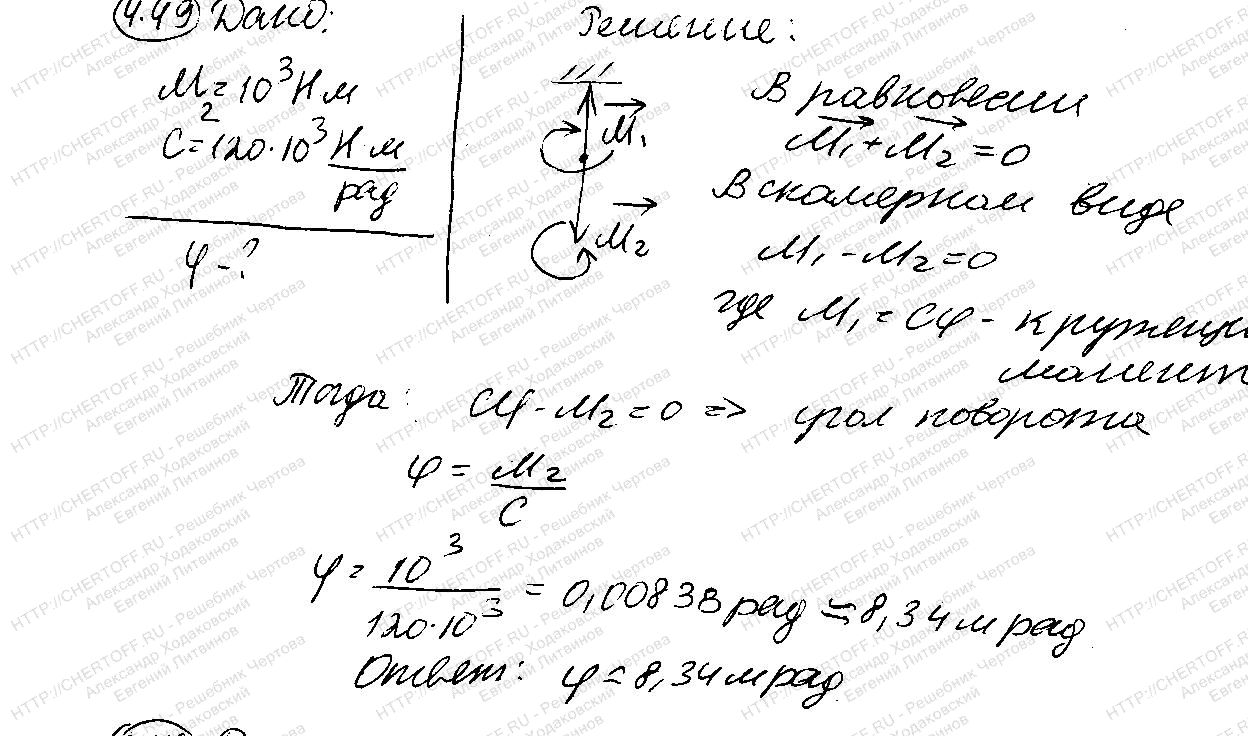 4.49 Дано:
M₂=10³ Нм
C=120·10³ Нм/рад
φ-?
Решение:
M₁
M₂
В равновесии
M₁+M₂=0
В скалярном виде
M₁-M₂=0
где M₁=Cφ - кружещи
момент
Тогда: Cφ-M₂=0 => угол поворота
φ= M₂/C
φ= 10³/120·10³ = 0,00833 рад ≃ 8,34 мрад
Ответ: φ=8,34 мрад
HTTP://CHERTOFF.RU - Решебник Чертова
Александр Ходаковский
Евгений Литвинов